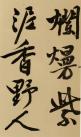 爛熳紫
涯香野人